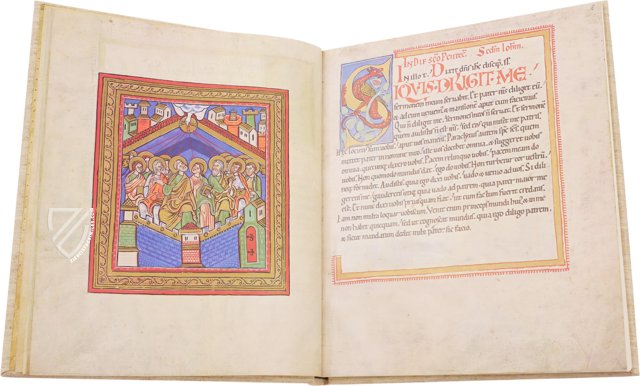 IN DIE SCO PENTEC Secdm Iohm.
In illo t. Dixit dns ihc discip. s.
SIQUIS DILIGIT ME
sermonem meum servabit. Et pater ms diliget eu
& ad eum veniem & mansione apud eum faciemus
Qui n diligit me. Sermones meos n servat. Et sermone
quem audistis n est ms. Sed eius qui misit me patris.
Hec locutus sum vobis apud vos manens. Paraclitus autem sps scs. quem
mittet pater in nomine meo. ille vos docebit omnia. & suggeret vobis
omnia quecumq dixero vobis. Pacem relinquo vobis. pacem meam do
vobis. Non quomodo mundus dat. ego do vobis. Non turbetur cor vestrum.
neq formidet. Audistis quia ego dixi vobis. vado & venio ad vos. Si dili-
geretis me. gauderetis utiq quia vado ad patrem. quia pater maior me
est. Et nunc dixi vobis priusqua fiat. ut cum factum fuerit credatis.
Iam non multa loquar vobiscum. Venit enim princeps mundi hui. & in me
non habet quicquam. Sed ut cognoscat mundus. quia ego diligo patrem.
& sicut mandatum dedit mihi pater. sic facio.